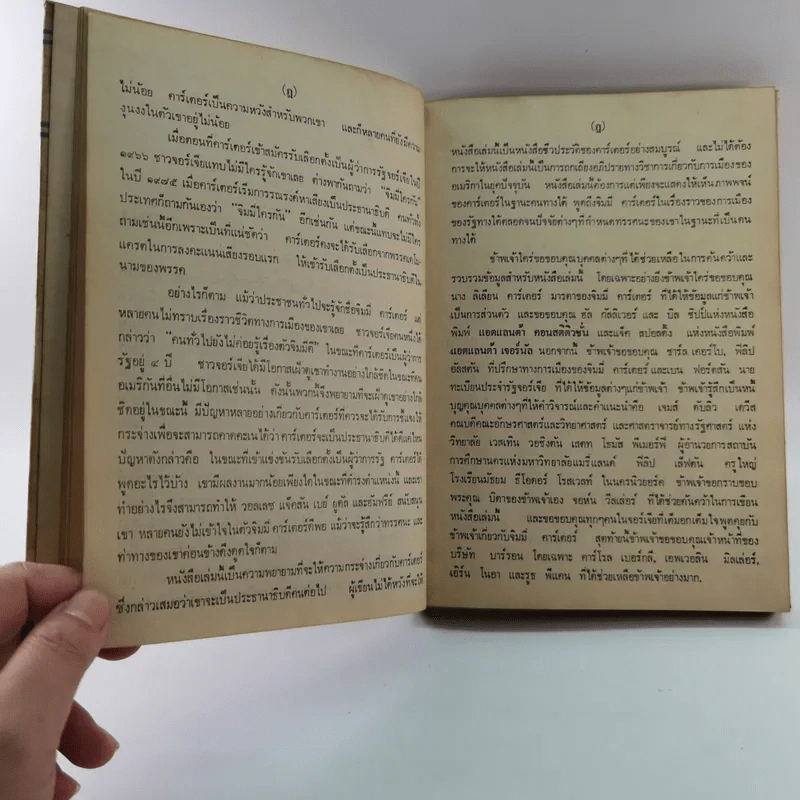 (ฎ)
ไม่น้อย คาร์เตอร์เป็นความหวังสำหรับพวกเขา และก็หลายคนที่ยังมีความ
งุนงงในตัวเขาอยู่ไม่น้อย
เมื่อตอนที่คาร์เตอร์เข้าสมัครรับเลือกตั้งเป็นผู้ว่าการรัฐจอร์เจียในปี
๑๙๖๖ ชาวจอร์เจียแทบไม่มีใครรู้จักเขาเลย ต่างพากันถามว่า "จิมมี่ไหนกัน"
ในปี ๑๙๗๕ เมื่อคาร์เตอร์เริ่มการรณรงค์หาเสียงเป็นประธานาธิบดี คนทั่วทั้ง
ประเทศก็ถามกันเองว่า "จิมมี่ใครกัน" อีกเช่นกัน แต่ขณะนี้แทบจะไม่มีใคร
ถามเช่นนี้อีกเพราะเป็นที่แน่ชัดว่า คาร์เตอร์คงจะได้รับเลือกจากพรรคเดโม-
แครตในการลงคะแนนเสียงรอบแรก ให้เข้ารับเลือกตั้งเป็นประธานาธิบดีใน
นามของพรรค
อย่างไรก็ตาม แม้ว่าประชาชนทั่วไปจะรู้จักชื่อจิมมี่ คาร์เตอร์ แต่
หลายคนไม่ทราบเรื่องราวชีวิตทางการเมืองของเขาเลย ชาวจอร์เจียคนหนึ่งได้
กล่าวว่า "คนทั่วไปยังไม่ค่อยรู้เรื่องตัวจิมมี่ดี" ในขณะที่คาร์เตอร์เป็นผู้ว่าการ
รัฐอยู่ ๔ ปี ชาวจอร์เจียได้มีโอกาสเฝ้าดูเขาทำงานอย่างใกล้ชิดในขณะที่คน
อเมริกันที่อื่นไม่มีโอกาสเช่นนั้น ดังนั้นพวกนี้จึงพยายามที่จะเฝ้าดูเขาอย่างใกล้
ชิดอยู่ในขณะนี้ มีปัญหาหลายอย่างเกี่ยวกับคาร์เตอร์ที่ควรจะได้รับการชี้แจงให้
กระจ่างเพื่อจะสามารถคาดคะเนได้ว่า คาร์เตอร์จะเป็นประธานาธิบดีได้ดีแค่ไหน
ปัญหาดังกล่าวคือ ในขณะที่เข้าแข่งขันรับเลือกตั้งเป็นผู้ว่าการรัฐ คาร์เตอร์ได้
พูดอะไรไว้บ้าง เขามีผลงานมากน้อยเพียงใดในขณะที่ดำรงตำแหน่งนี้ และเขา
ทำอย่างไรจึงสามารถทำให้ วอลเลซ แจ็คสัน เบย์ ยูดัล และฮัมฟรีย์ สนับสนุน
เขา หลายคนยังไม่เข้าใจในตัวจิมมี่ คาร์เตอร์ดีพอ แม้ว่าจะรู้สึกว่าทรรศนะ และ
ท่าทางของเขาค่อนข้างดึงดูดใจก็ตาม
หนังสือเล่มนี้เป็นความพยายามที่จะให้ความกระจ่างเกี่ยวกับคาร์เตอร์
ซึ่งกล่าวเสมอว่าเขาจะเป็นประธานาธิบดีคนต่อไป ผู้เขียนไม่ได้หวังที่จะให้
(ฏ)
หนังสือเล่มนี้เป็นหนังสือชีวประวัติของคาร์เตอร์อย่างสมบูรณ์ และไม่ได้ต้อง
การจะให้หนังสือเล่มนี้เป็นการถกเถียงอภิปรายทางวิชาการเกี่ยวกับการเมืองของ
อเมริกาในยุคปัจจุบัน หนังสือเล่มนี้ต้องการแต่เพียงจะแสดงให้เห็นภาพพจน์
ของคาร์เตอร์ในฐานะคนทางใต้ พูดถึงจิมมี่ คาร์เตอร์ในเรื่องราวของการเมือง
ของรัฐทางใต้ตลอดจนปัจจัยต่างๆที่กำหนดทรรศนะของเขาในฐานะที่เป็นคน
ทางใต้
ข้าพเจ้าใคร่ขอขอบคุณบุคคลต่างๆที่ได้ช่วยเหลือในการค้นคว้าและ
รวบรวมข้อมูลสำหรับหนังสือเล่มนี้ โดยเฉพาะอย่างยิ่งข้าพเจ้าใคร่ขอขอบคุณ
นาง ลิเลียน คาร์เตอร์ มารดาของจิมมี่ คาร์เตอร์ ที่ได้ให้ข้อมูลแก่ข้าพเจ้า
เป็นการส่วนตัว และขอขอบคุณ ฮัล กัลลิเวอร์ และ บิล ชีปป์แห่งหนังสือ
พิมพ์ แอตแลนต้า คอนสติติวชั่น และแจ็ค สปอลดิ้ง แห่งหนังสือพิมพ์
แอตแลนต้า เจอร์นัล นอกจากนี้ ข้าพเจ้าขอขอบคุณ ชาร์ล เคอร์โบ, ฟิลิป
อัลสตัน ที่ปรึกษาทางการเมืองของจิมมี่ คาร์เตอร์ และเบน ฟอร์ตสัน นาย
ทะเบียนประจำรัฐจอร์เจีย ที่ได้ให้ข้อมูลต่างๆแก่ข้าพเจ้า ข้าพเจ้ารู้สึกเป็นหนี้
บุญคุณบุคคลต่างๆที่ให้คำวิจารณ์และคำแนะนำคือ เจมส์ ดับลิว เดวีส
คณบดีคณะอักษรศาสตร์และวิทยาศาสตร์ และศาสตราจารย์ทางรัฐศาสตร์ แห่ง
วิทยาลัย เวสเทิน วอชิงตัน เสตท โธมัส พีเมอร์ฟี่ ผู้อำนวยการสถาบัน
การศึกษานครแห่งมหาวิทยาลัยแมริแลนด์ ฟิลิป เล็ฟตัน ครูใหญ่
โรงเรียนมัธยม ธีโอดอร์ โรสเวลท์ ในนครนิวยอร์ค ข้าพเจ้าขอกราบขอบ
พระคุณ บิดาของข้าพเจ้าเอง จอห์น วีลเลอร์ ที่ได้ช่วยตัวในการเขียน
หนังสือเล่มนี้ และขอขอบคุณทุกๆคนในจอร์เจียที่เต็มอกเต็มใจพูดคุยกับ
ข้าพเจ้าเกี่ยวกับจิมมี่ คาร์เตอร์ สุดท้ายนี้ข้าพเจ้าขอขอบคุณเจ้าหน้าที่ของ
บริษัท บาร์รอน โดยเฉพาะ คาร์โรล เบอร์กลี่, เอพเวอลิน มิลเล่อร์,
เอิร์น โนฮา และรูธ พีแคน ที่ได้ช่วยเหลือข้าพเจ้าอย่างมาก.